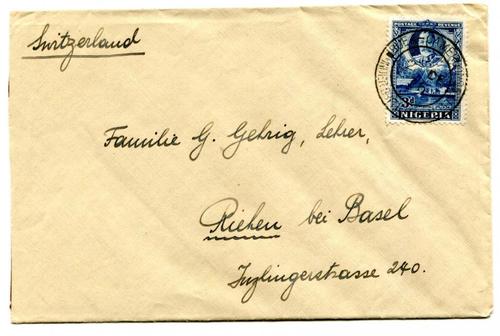 Switzerland
POSTAGE & REVENUE
3d
NIGERIA
Familie G. Gehrig, Lehrer,
Riehen bei Basel
Inzlingerstrasse 240.